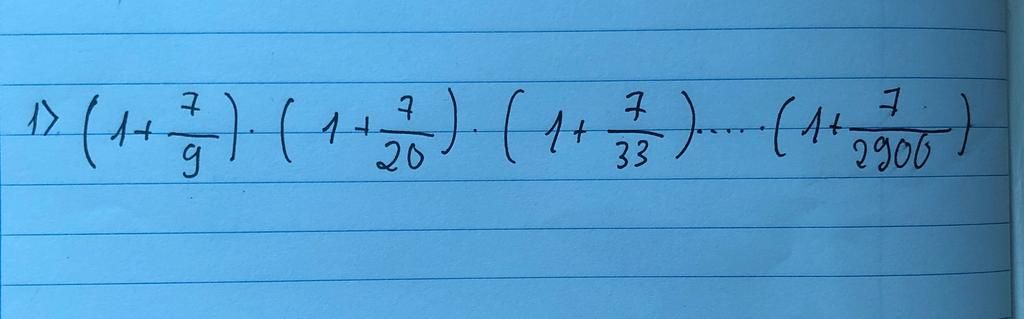 1) (1+7/9)·(1+7/20)·(1+7/33)·····(1+7/2900)